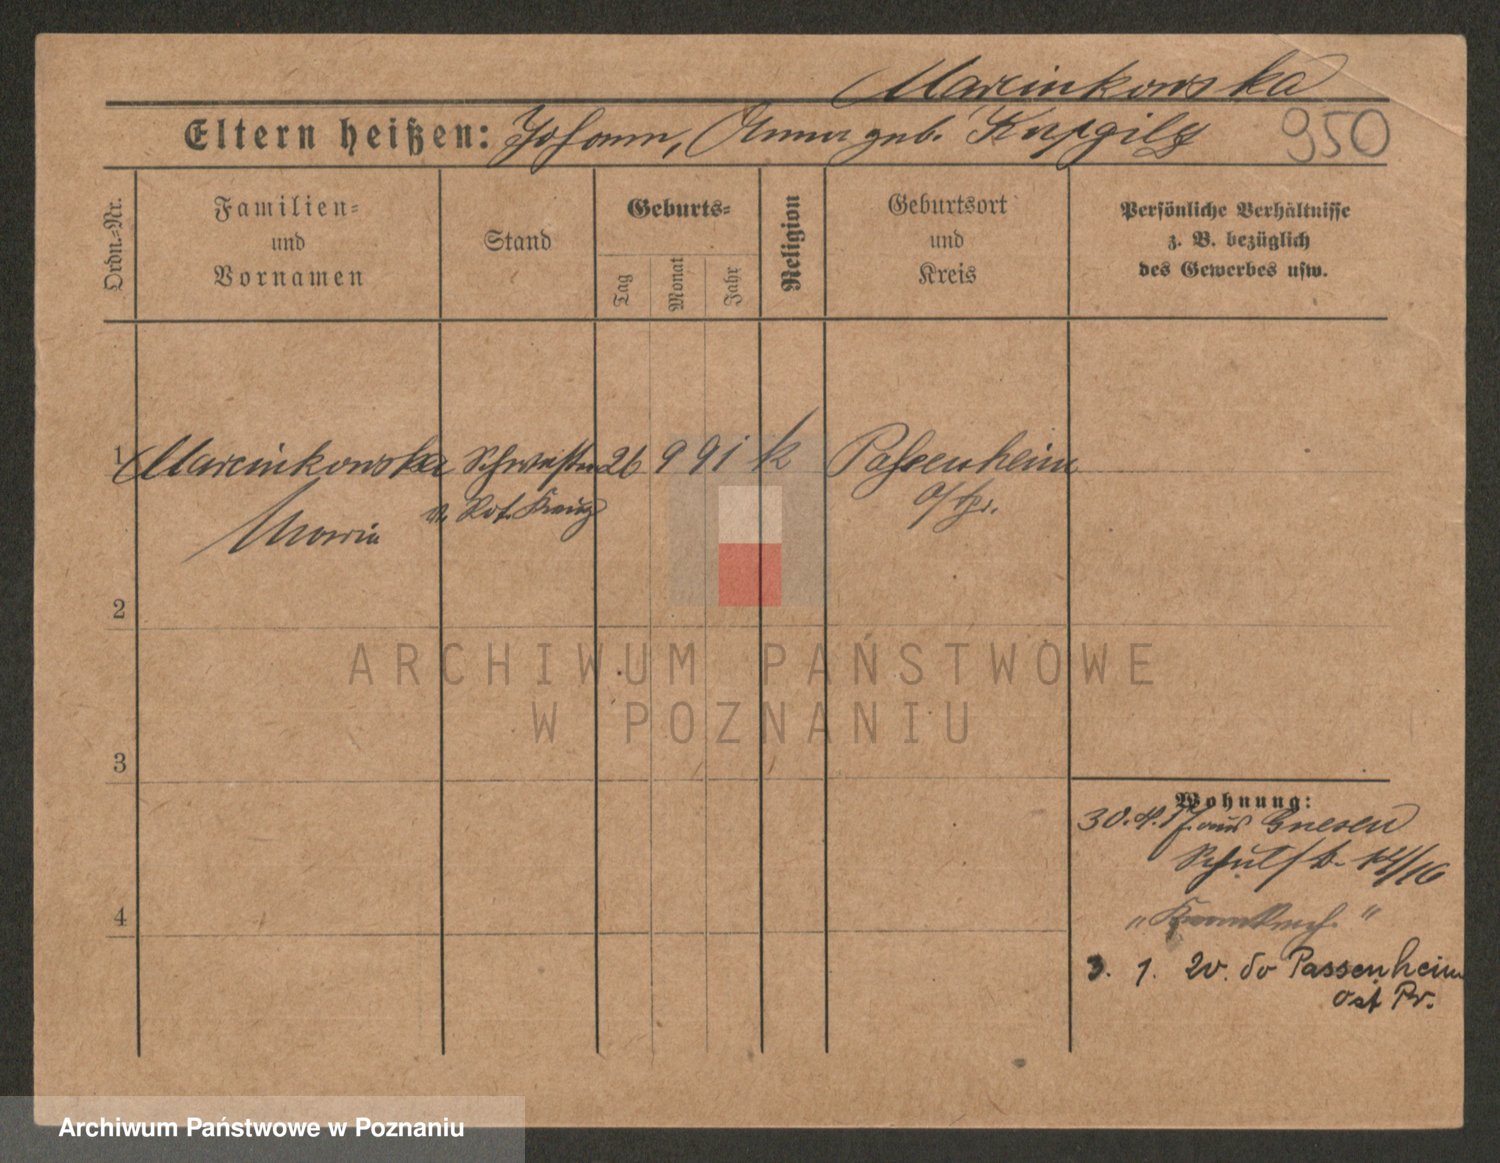 Marcinkowska
Eltern heißen: Johann, Anna geb.
950
Ordn.=Nr.
Familien=
und
Vornamen
Stand
Geburts=
Tag
Monat
Jahr
Religion
Geburtsort
und
Kreis
Persönliche Verhältnisse
z. B. bezüglich
des Gewerbes usw.
1 Marcinkowska Schwester 26 9 91 k Passenheim
v. Rot. Kreuz o/Pr.
Maria
2
ARCHIWUM PAŃSTWOWE
W POZNANIU
3
Wohnung:
30. 4. 17. aus Gnesen
Schulstr. 14/16
4
3. 1. 20. do Passenheim
ost Pr.
Archiwum Państwowe w Poznaniu